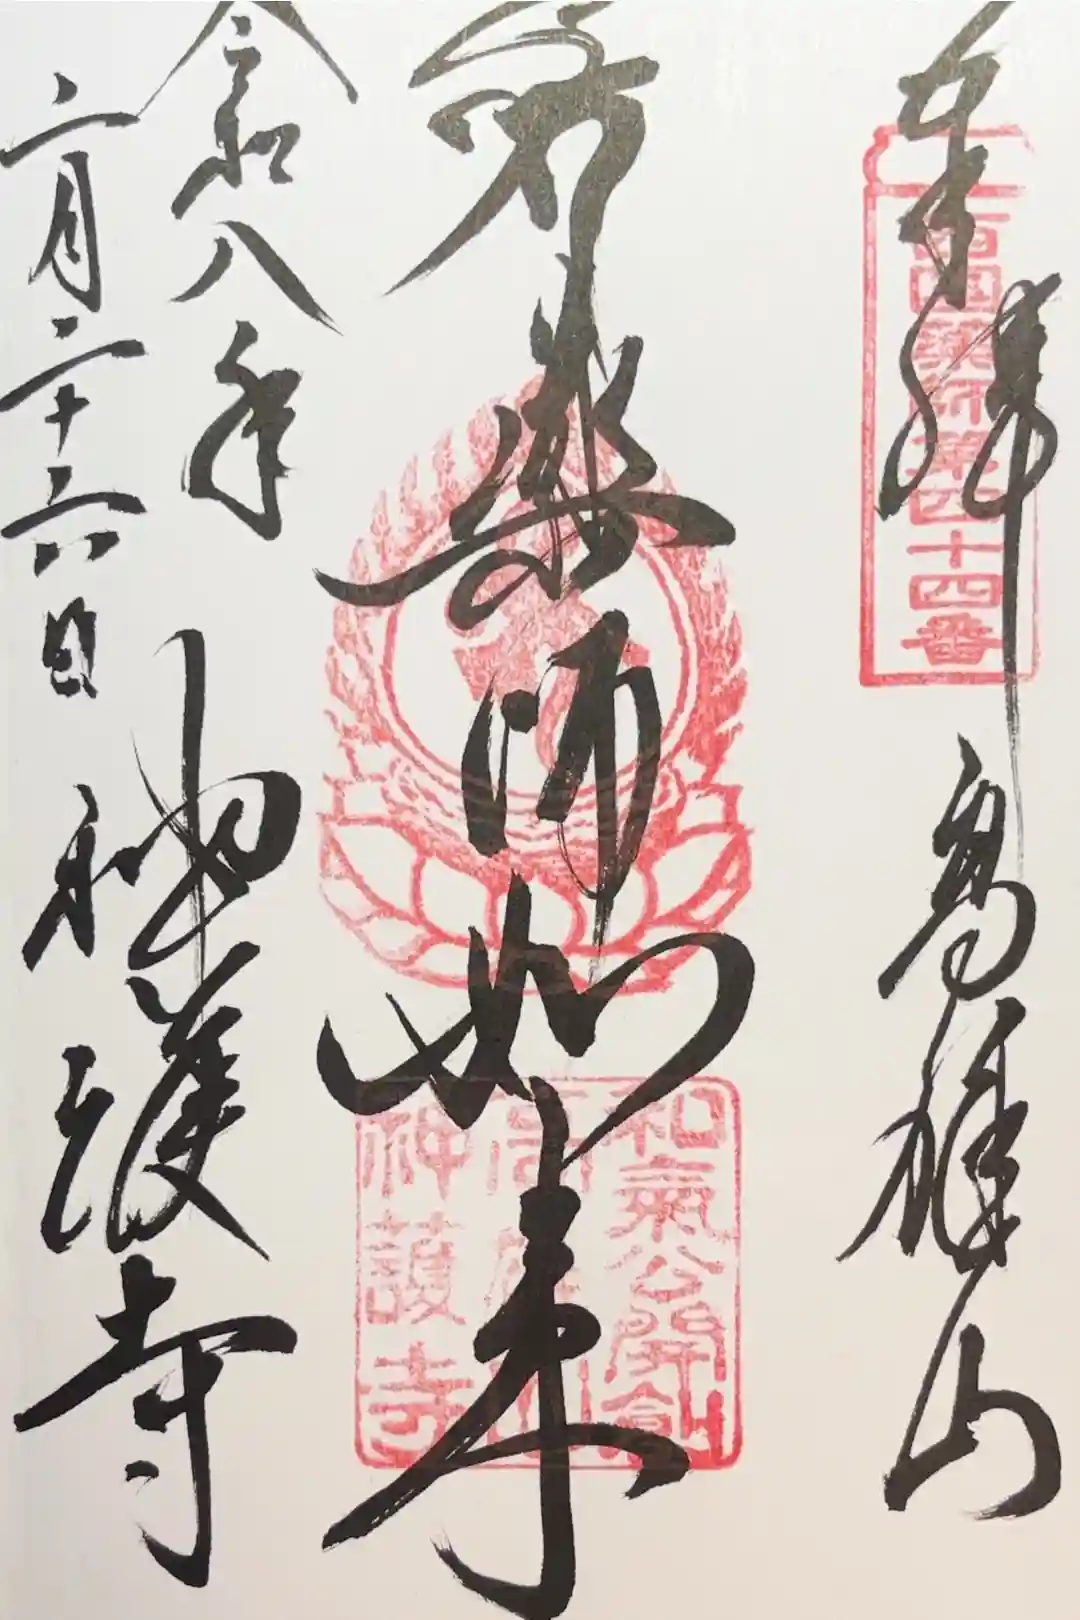 奉拝
西國薬師第四十四番
高雄山
弥薬師如来
和氣公開創
高雄山
神護寺
令和八年
二月二十六日
神護寺